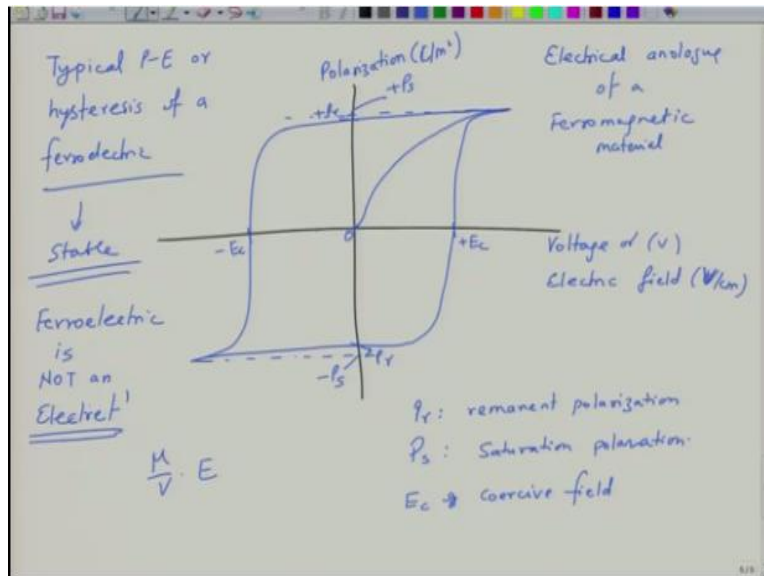 Typical P-E or
hysteresis of a
ferroelectric
↓
Stable
Ferroelectric
is
NOT an
Electret'
μ/V · E
Polarization (C/m²)
+Ps
+Pr
-Ec
0
+Ec
-Pr
-Ps
Electrical analogue
of a
Ferromagnetic
material
Voltage or (V)
Electric field (V/cm)
Pr: remanent polarization
Ps: Saturation polarization
Ec → Coercive field
6/6